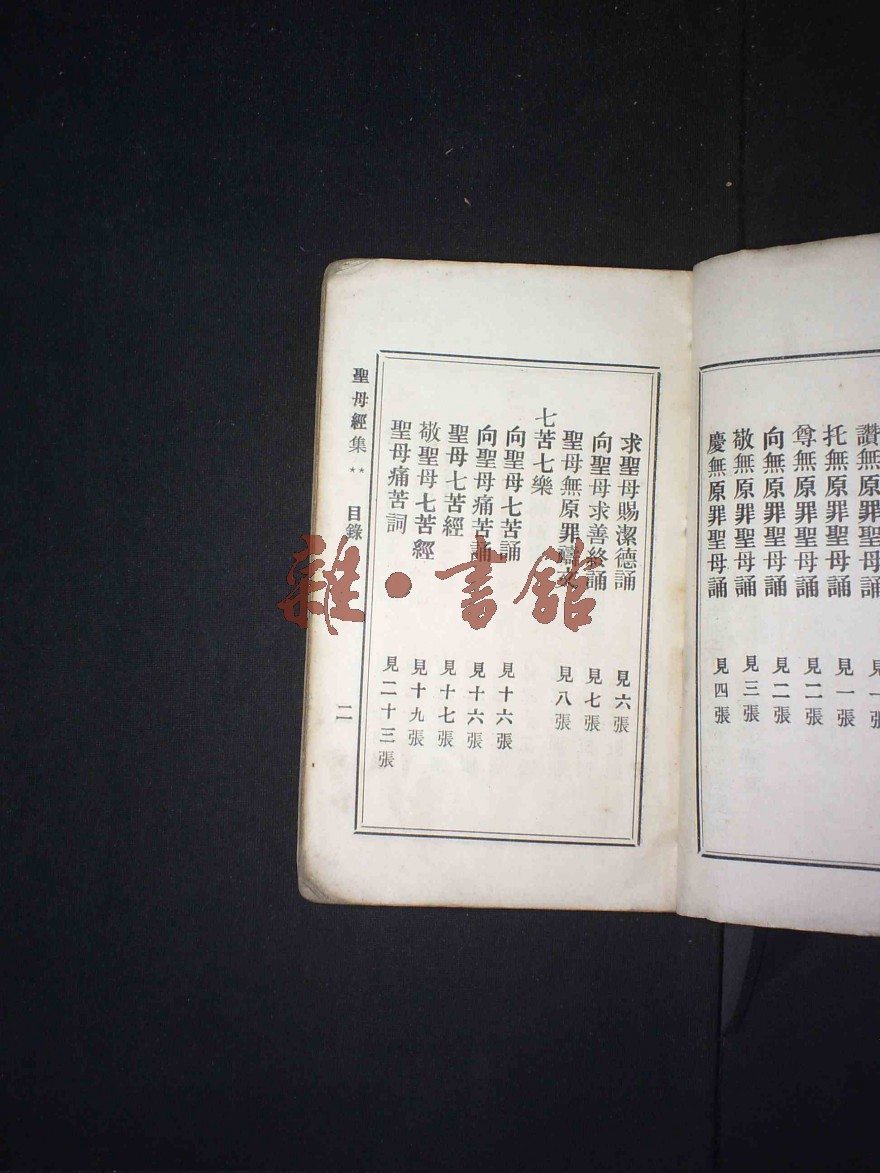 讚無原罪聖母誦
托無原罪聖母誦 見一張
尊無原罪聖母誦 見二張
向無原罪聖母誦 見二張
敬無原罪聖母誦 見三張
慶無原罪聖母誦 見四張
求聖母賜潔德誦 見六張
向聖母求善終誦 見七張
聖母無原罪禱文 見八張
七苦七樂
向聖母七苦誦 見十六張
向聖母痛苦誦 見十六張
聖母七苦經 見十七張
敬聖母七苦經 見十九張
聖母痛苦詞 見二十三張
聖母經集 ** 目錄 二
雜·書館